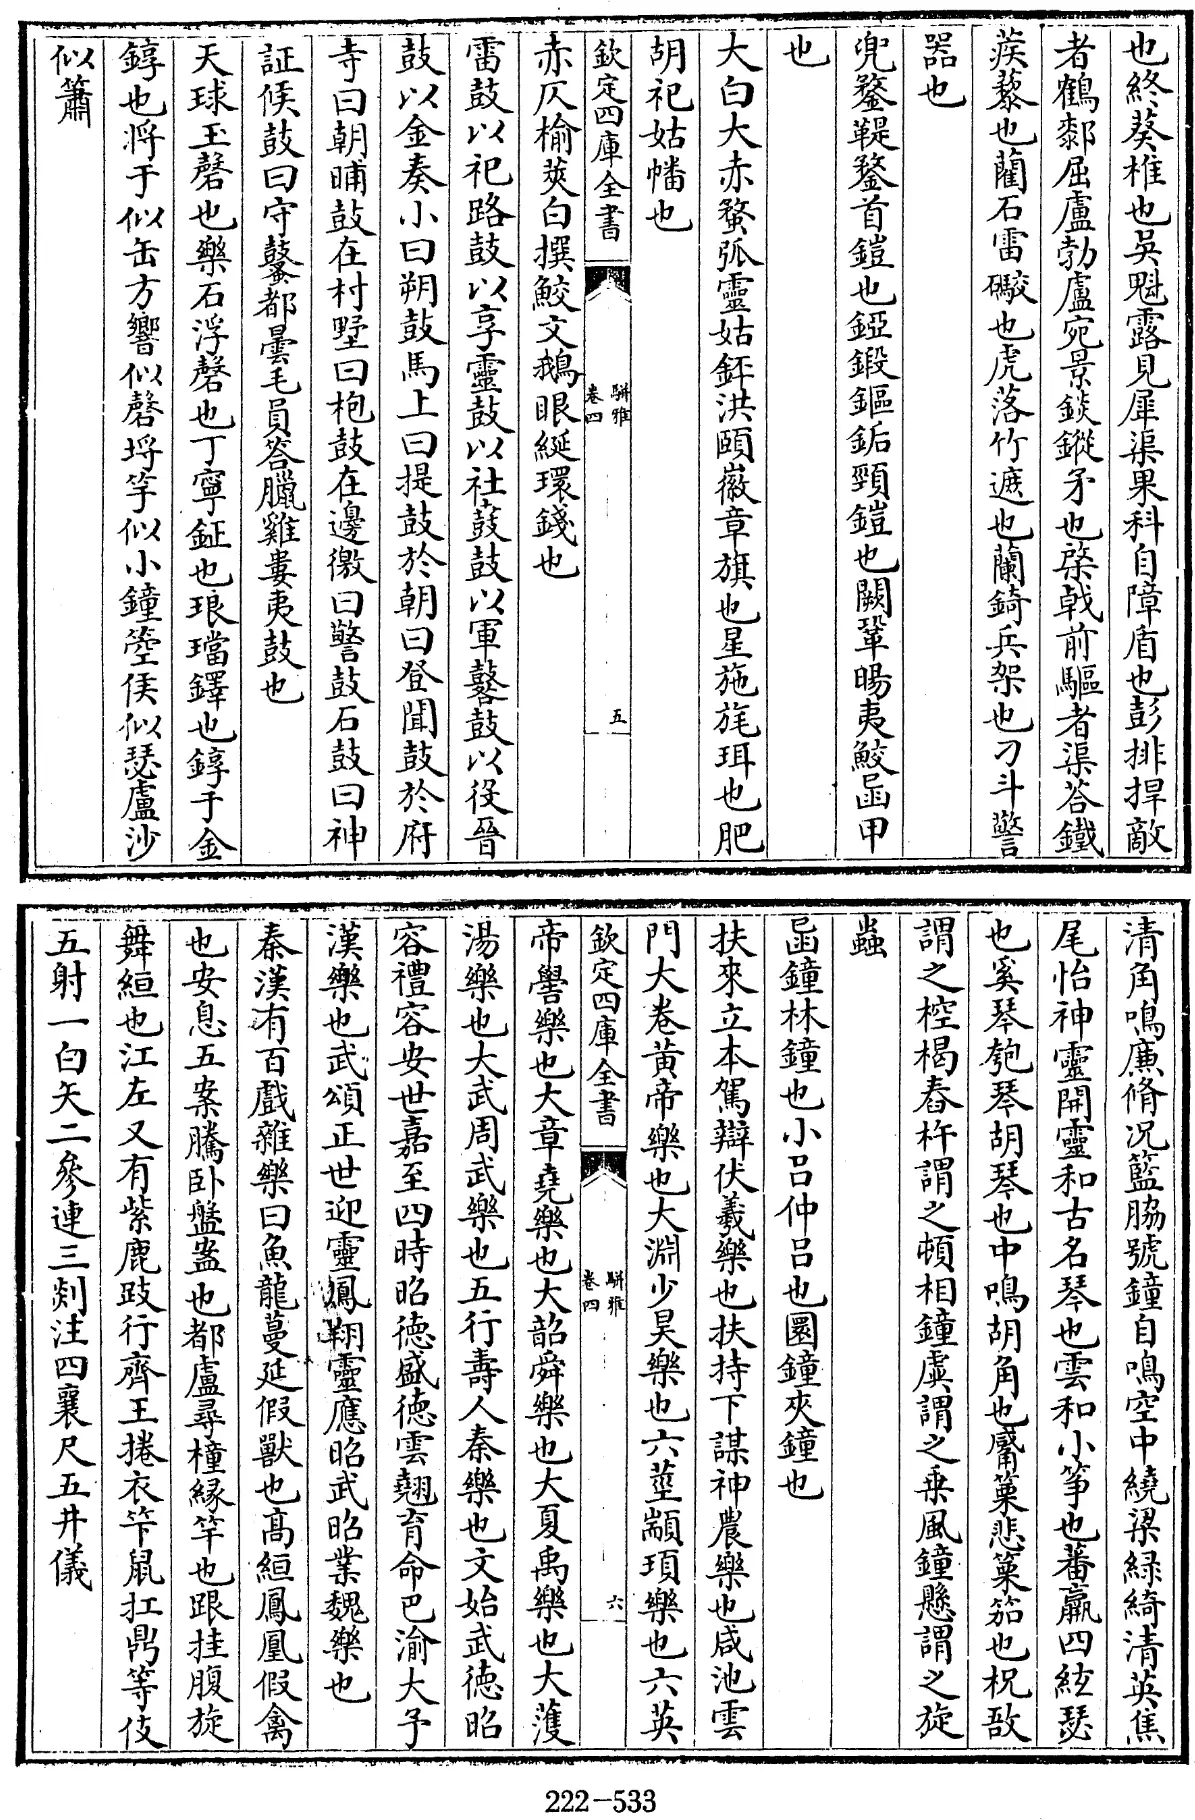 也終葵椎也吳魁露見犀渠果科自障盾也彭排捍敵
者鶴鄒屈盧勃盧宛景錟鏦矛也棨戟前驅者渠荅鐵
蒺藜也藺石雷礮也虎落竹遮也蘭錡兵架也刁斗警
器也
兜鍪鞮鍪首鎧也錏鍜鏂銗頸鎧也闕鞏暘夷鮫函甲
也
大白大赤蝥弧靈姑銔洪頤徽章旗也星施旄珥也肥
胡祀姑幡也
欽定四庫全書
駢雅
卷四
五
赤仄榆莢白撰鮫文鵝眼綖環錢也
雷鼓以祀路鼓以享靈鼓以社鼖鼓以軍鼛鼓以役晉
鼓以金奏小曰朔鼓馬上曰提鼓於朝曰登聞鼓於府
寺曰朝晡鼓在村墅曰枹鼓在邊徼曰警鼓石鼓曰神
証候鼓曰守鼜都曇毛員答臘雞婁夷鼓也
天球玉磬也樂石浮磬也丁寧鉦也琅璫鐸也錞于金
錞也將于似缶方響似磬埓竽似小鐘箜侯似瑟盧沙
似簫
清角鳴廉脩况籃脇號鐘自鳴空中繞梁綠綺清英焦
尾怡神靈開靈和古名琴也雲和小箏也蕃臝四絃瑟
也奚琴匏琴胡琴也中鳴胡角也觱篥悲篥笳也柷敔
謂之椌楬舂杵謂之頓相鐘虡謂之乗風鐘懸謂之旋
蟲
函鐘林鐘也小呂仲呂也圜鐘夾鐘也
扶來立本駕辯伏羲樂也扶持下謀神農樂也咸池雲
門大卷黃帝樂也大淵少昊樂也六莖顓頊樂也六英
欽定四庫全書
駢雅
卷四
六
帝嚳樂也大章堯樂也大韶舜樂也大夏禹樂也大濩
湯樂也大武周武樂也五行壽人秦樂也文始武德昭
容禮容安世嘉至四時昭德盛德雲翹育命巴渝大予
漢樂也武頌正世迎靈鳳翔靈應昭武昭業魏樂也
秦漢有百戲雜樂曰魚龍蔓延假獸也高絙鳳凰假禽
也安息五案騰卧盤盎也都盧尋橦緣竿也跟挂腹旋
舞絙也江左又有紫鹿跂行齊王捲衣笇鼠扛鼎等伎
五射一白矢二參連三剡注四襄尺五井儀
222-533